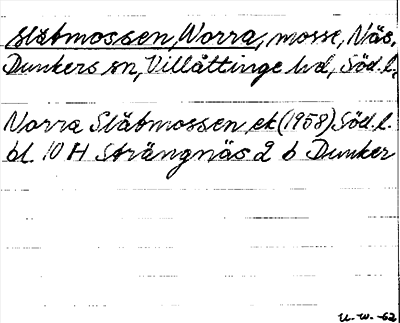 Slåtmossen, Norra, mosse, Näs,
Dunkers sn, Villåttinge hd, Söd. l.
Norra Slåtmossen ek (1958) Söd. l.
bl. 10 H Strängnäs 2 b Dunker
U. W. -62